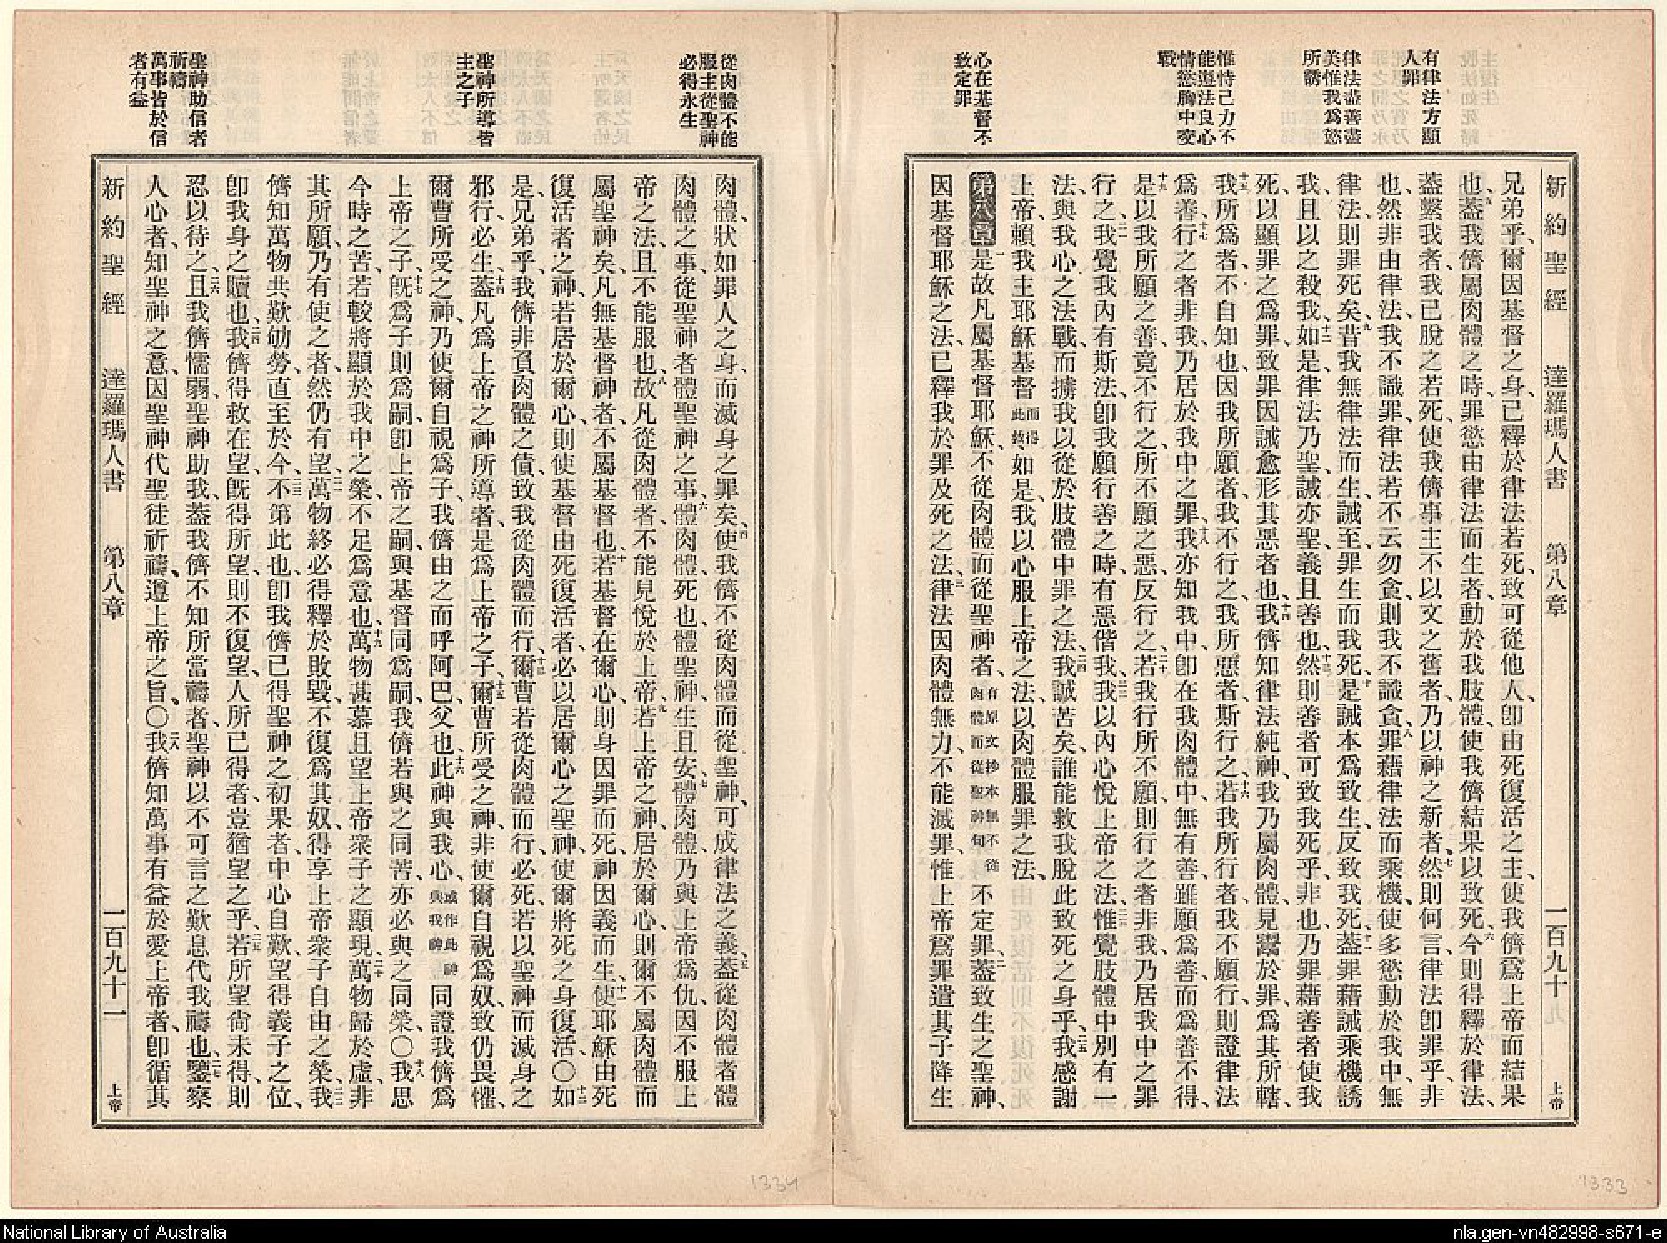 有律法方顯
人罪
律法盡善盡
美惟我爲慾
所誘
惟恃己力不
能遵法良心
情慾胸中交
戰
心在基督不
致定罪
新約聖經 達羅瑪人書 第八章 一百九十 上帝
兄弟乎、爾因基督之身、已釋於律法若死、致可從他人、卽由死復活之主、使我儕爲上帝而結果
也、蓋我儕屬肉體之時、罪慾由律法而生者、動於我肢體、使我儕結果以致死、今則得釋於律法、
蓋繫我者、我已脫之若死、使我儕事主、不以文之舊者、乃以神之新者、然則何言、律法卽罪乎、非
也、然非由律法、我不識罪、律法若不云勿貪、則我不識貪、罪藉律法而乘機、使多慾動於我中、無
律法、則罪死矣、昔我無律法而生、誡至罪生而我死、是誡本爲致生、反致我死、蓋罪藉誡乘機誘
我、且以之殺我、如是、律法乃聖、誡亦聖、義且善也、然則善者可致我死乎、非也、乃罪藉善者使我
死、以顯罪之爲罪、致罪因誡愈形其惡者也、我儕知律法純神、我乃屬肉體、見鬻於罪、爲其所轄、
我所爲者、不自知也、因我所願者、我不行之、我所惡者、斯行之、若我所行者、我不願行、則證律法
爲善、行之者非我、乃居於我中之罪、我亦知我中、卽在我肉體中無有善、雖願爲善、而爲善不得、
是以我所願之善、竟不行之、所不願之惡、反行之、若我行所不願、則行之者非我、乃居我中之罪
行之、我覺我內有斯法、卽我願行善之時、有惡偕我、我以內心悅上帝之法、惟覺肢體中別有一
法、與我心之法戰、而擄我以從於肢體中罪之法、我誠苦矣、誰能救我脫此致死之身乎、我感謝
上帝、賴我主耶穌基督而得此救如是、我以心服上帝之法、以肉體服罪之法、
第八章是故凡屬基督耶穌、不從肉體而從聖神者、有原文抄本無不從肉體而從聖神句不定罪、蓋致生之聖神、
因基督耶穌之法、已釋我於罪及死之法、律法因肉體無力、不能滅罪、惟上帝爲罪遣其子降生
1333
從肉體不能
服主從聖神
必得永生
聖神所導皆
主之子
聖神助信者
祈禱
萬事皆於信
者有益
肉體、狀如罪人之身、而滅身之罪矣、使我儕不從肉體而從聖神、可成律法之義、蓋從肉體者、體
肉體之事、從聖神者、體聖神之事、體肉體、死也、體聖神、生且安、體肉體、乃與上帝爲仇、因不服上
帝之法、且不能服也、故凡從肉體者、不能見悅於上帝、若上帝之神、居於爾心、則爾不屬肉體、而
屬聖神矣、凡無基督神者、不屬基督也、若基督在爾心、則身因罪而死、神因義而生、使耶穌由死
復活者之神、若居於爾心、則使基督由死復活者、必以居爾心之聖神、使爾將死之身復活、〇如
是、兄弟乎、我儕非負肉體之債、致我從肉體而行、爾曹若從肉體而行、必死、若以聖神而滅身之
邪行、必生、蓋凡爲上帝之神所導者、是爲上帝之子、爾曹所受之神、非使爾自視爲奴、致仍畏懼、
爾曹所受之神、乃使爾自視爲子、我儕由之而呼阿巴父也、此神與我心、或作此神與我神同證我儕爲
上帝之子、旣爲子、則爲嗣、卽上帝之嗣、與基督同爲嗣、我儕若與之同苦、亦必與之同榮、〇我思
今時之苦、若較將顯於我中之榮、不足爲意也、萬物甚慕且望上帝衆子之顯現、萬物歸於虛、非
其所願、乃有使之者、然仍有望、萬物終必得釋於敗毀、不復爲其奴、得享上帝衆子自由之榮、我
儕知萬物共歎劬勞、直至於今、不第此也、卽我儕已得聖神之初果者、中心自歎、望得義子之位、
卽我身之贖也、我儕得救在望、旣得所望、則不復望、人所已得者、豈猶望之乎、若所望尙未得、則
忍以待之、且我儕懦弱、聖神助我、蓋我儕不知所當禱者、聖神以不可言之歎息、代我禱也、鑒察
人心者、知聖神之意、因聖神代聖徒祈禱、遵上帝之旨、〇我儕知萬事有益於愛上帝者、卽循其
新約聖經 達羅瑪人書 第八章 一百九十一 上帝
1334
National Library of Australia
nla.gen-vn482998-s671-e